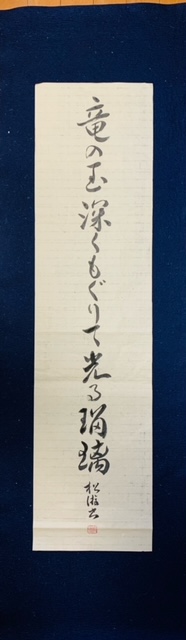 竜の玉深くもぐりて光る瑠璃